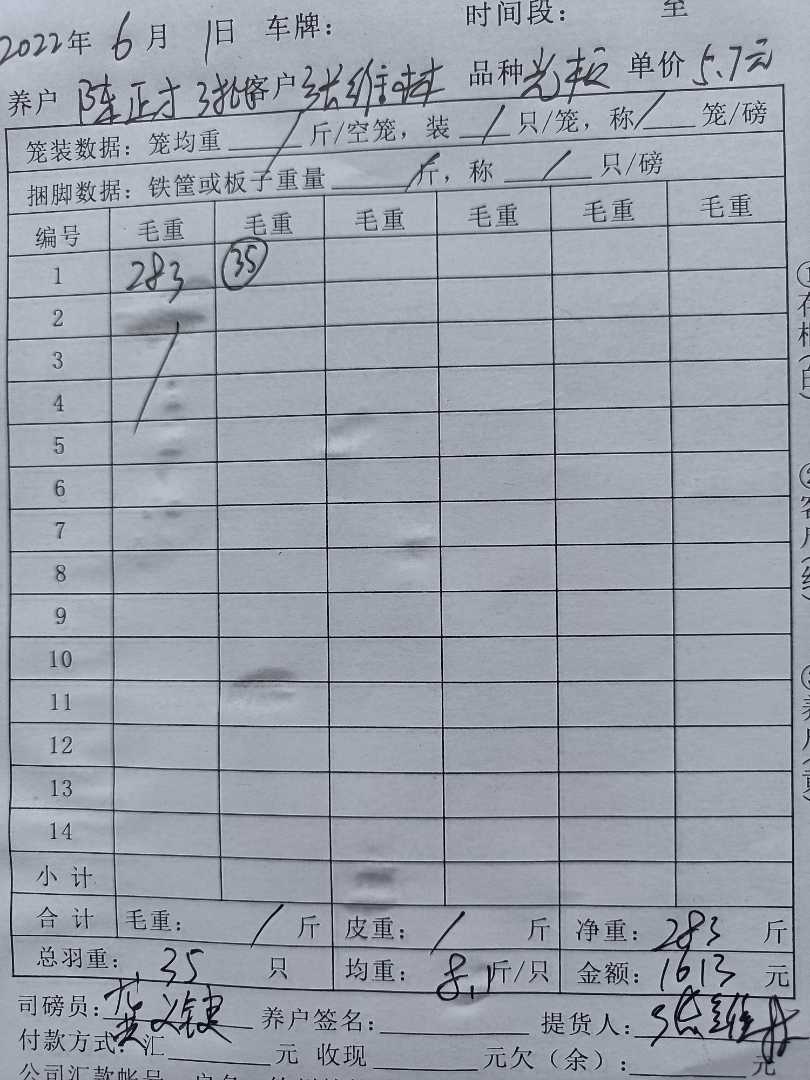 时间段： 至
2022年 6月 1日 车牌：
养户 陈正才 3批 客户 张维林 品种 单价 5.7元
笼装数据：笼均重 / 斤/空笼，装 / 只/笼，称 / 笼/磅
捆脚数据：铁筐或板子重量 / 斤，称 / 只/磅
编号 毛重 毛重 毛重 毛重 毛重 毛重
1 283 35
2
3
4
5
6
7
8
9
10
11
12
13
14
小计
合计 毛重： / 斤 皮重： / 斤 净重：283 斤
总羽重：35 只 均重：8.1斤/只 金额：1613 元
司磅员： 养户签名： 提货人：张维林
付款方式：汇 元 收现 元欠（余）： 元
公司汇款帐号
①存根（白）
②客户（红）
③养户（黄）